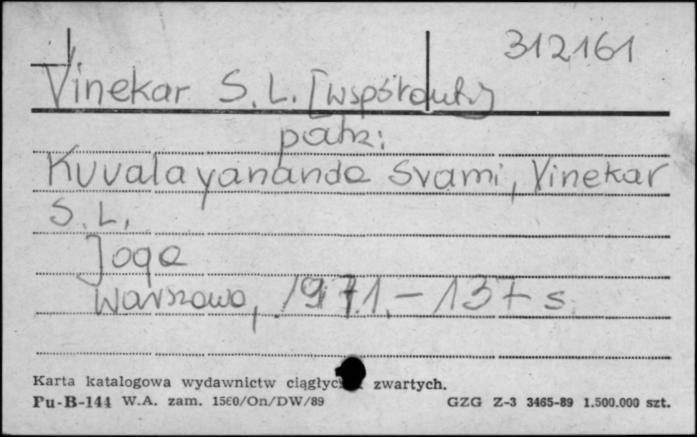 312161
Vinekar S. L. [współaut.]
patrz:
Kuvalayananda Svami, Vinekar
S. L.
Joga
Warszawa, 1971. – 137 s.
Karta katalogowa wydawnictw ciągłych zwartych.
Pu-B-144 W.A. zam. 1560/On/DW/89 GZG Z-3 3465-89 1.500.000 szt.